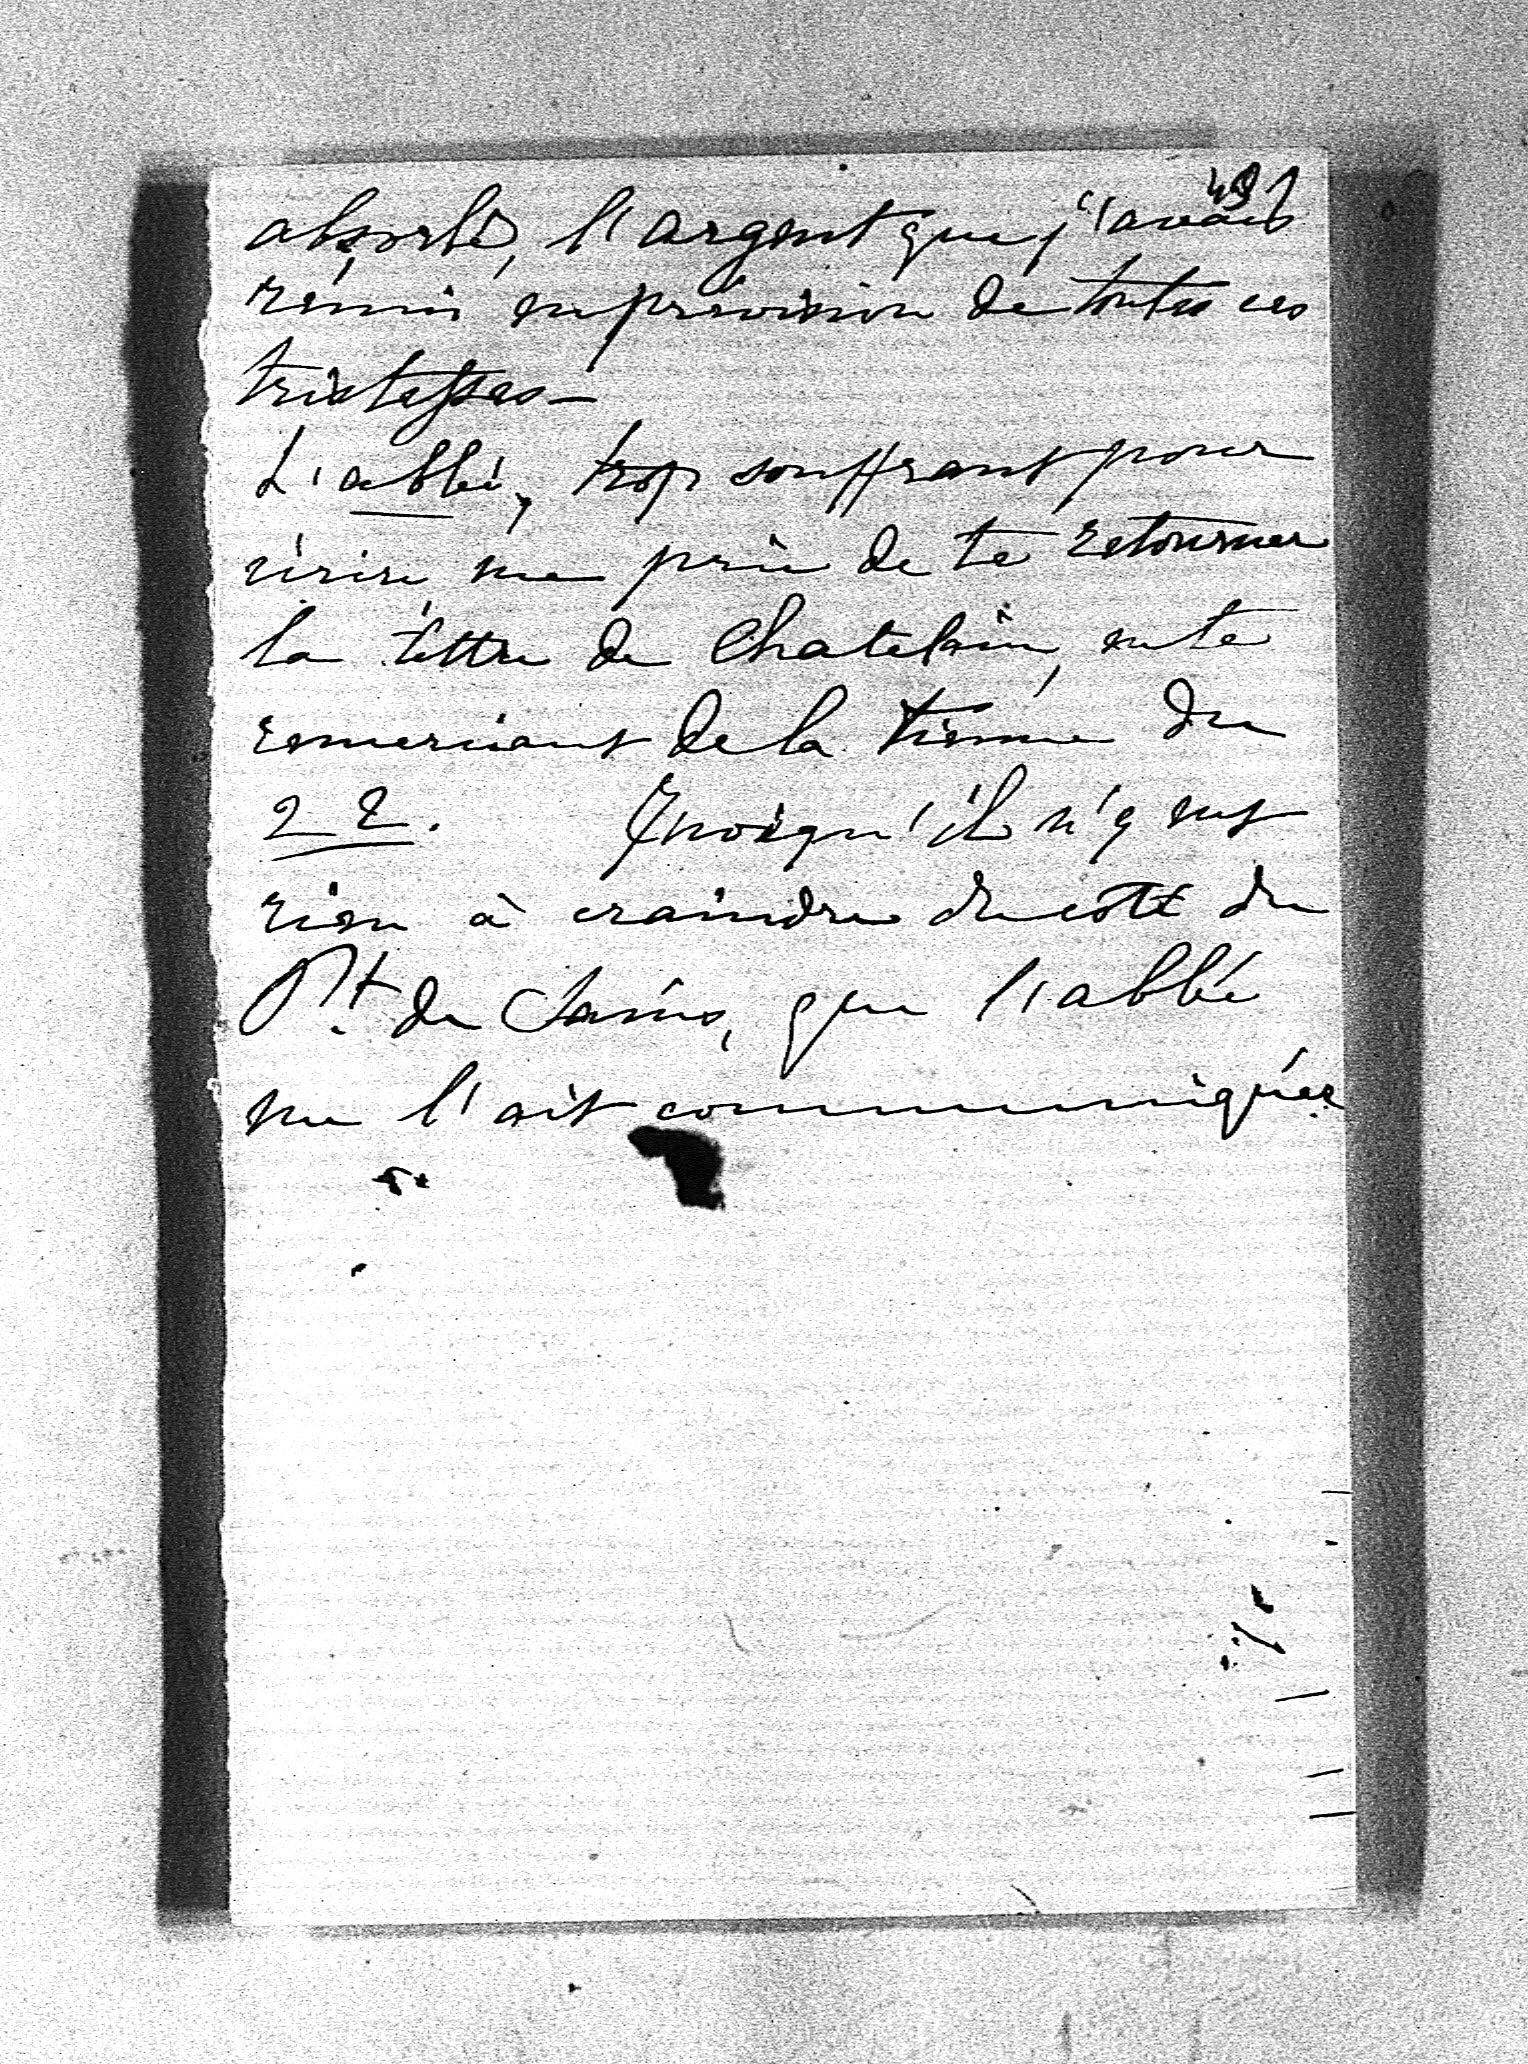 491
absorbé, l'argent que j'avais
réuni en prévision de toutes ces
tristesses —
L'abbé, trop souffrant pour
écrire, me prie de te retourner
la lettre de Chatelain, en te
remerciant de la tienne du
22. Quoiqu'il n'y eut
rien à craindre du coté du
Pt. de que l'abbé
ne l'ait communiquée